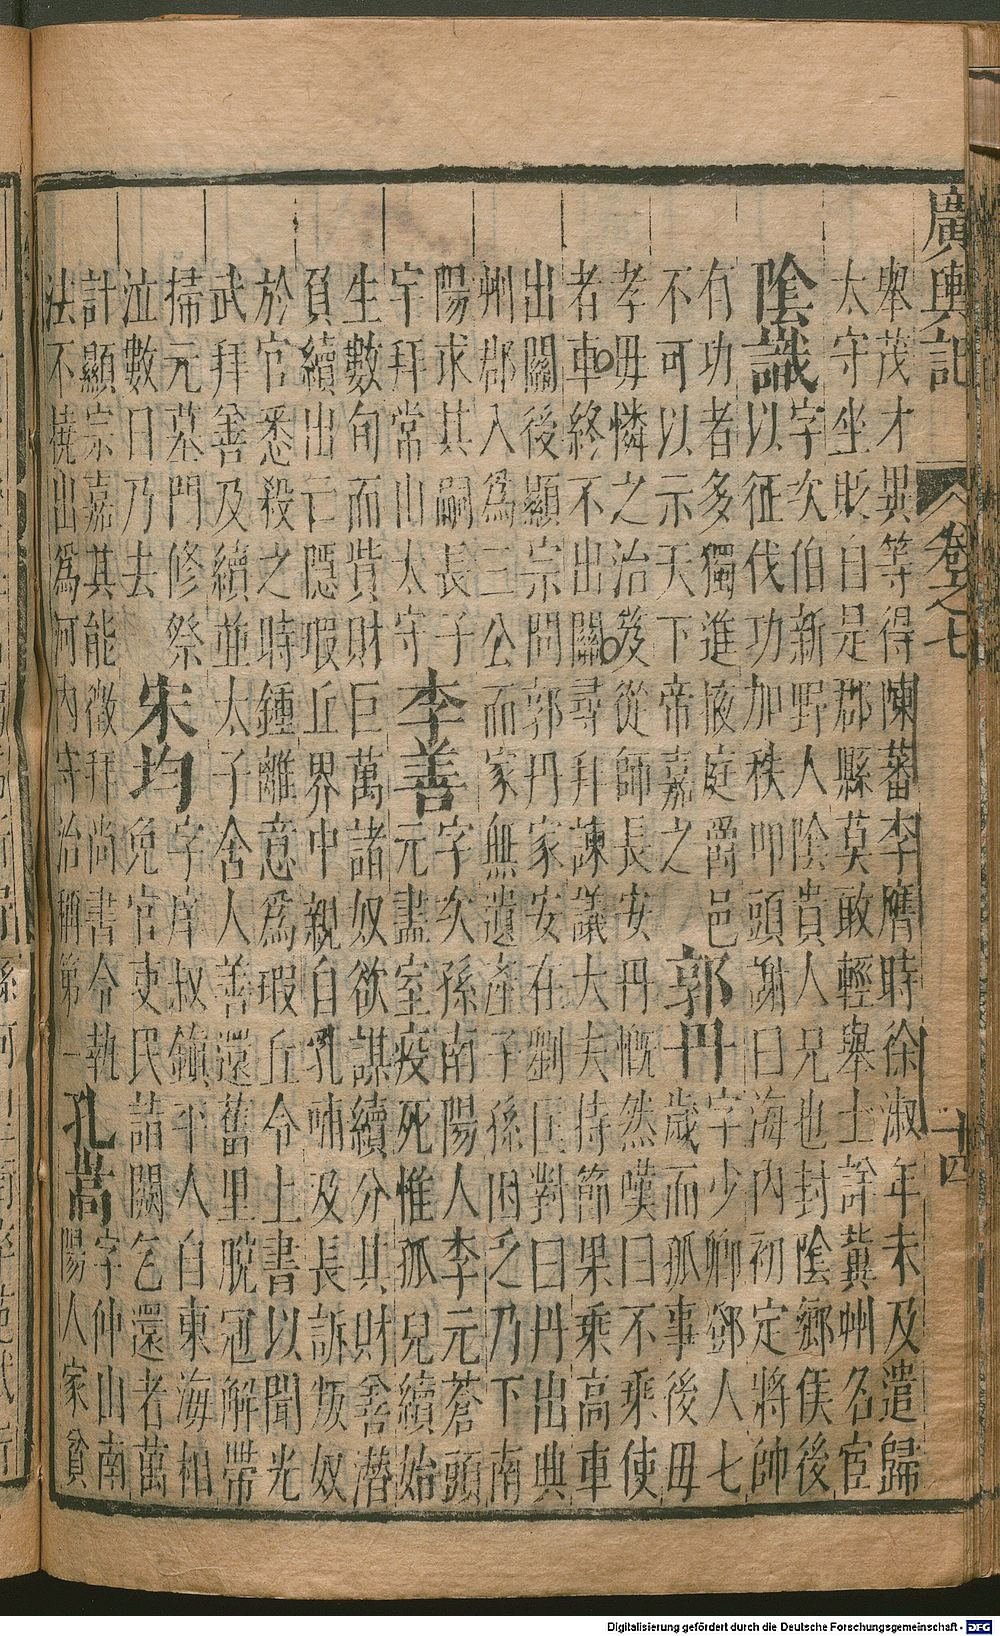 廣輿記
卷之七
十四
舉茂才異等得陳蕃李膺時徐淑年未及遣歸
太守坐貶自是郡縣莫敢輕舉士評冀州名宦
陰識
字次伯新野人陰貴人兄也封陰鄉侯後
以征伐功加秩叩頭謝曰海內初定將帥
有功者多獨進掖庭爵邑
不可以示天下帝嘉之
郭丹
字少卿鄧人七
歲而孤事後母
孝母憐之治笈從師長安丹慨然嘆曰不乘使
者車終不出關尋拜諫議大夫持節果乘高車
出關後顯宗問郭丹家安在劉匡對曰丹出典
州郡入爲三公而家無遺產子孫困乏乃下南
陽求其嗣長子
宇拜常山太守
李善
字次孫南陽人李元蒼頭
元盡室疫死惟孤兒續始
生數旬而貲財巨萬諸奴欲謀續分其財善潛
負續出亡隱瑕丘界中親自乳哺及長訴叛奴
於官悉殺之時鍾離意爲瑕丘令上書以聞光
武拜善及續並太子舍人善還舊里脫冠解帶
掃元墓門修祭
泣數日乃去
宋均
字庠叔鎮平人自東海相
免官吏民詣闕乞還者萬
計顯宗嘉其能徵拜尚書令執
法不撓出爲河內守治稱第一
孔嵩
字仲山南
陽人家貧
Digitalisierung gefördert durch die Deutsche Forschungsgemeinschaft - DFG